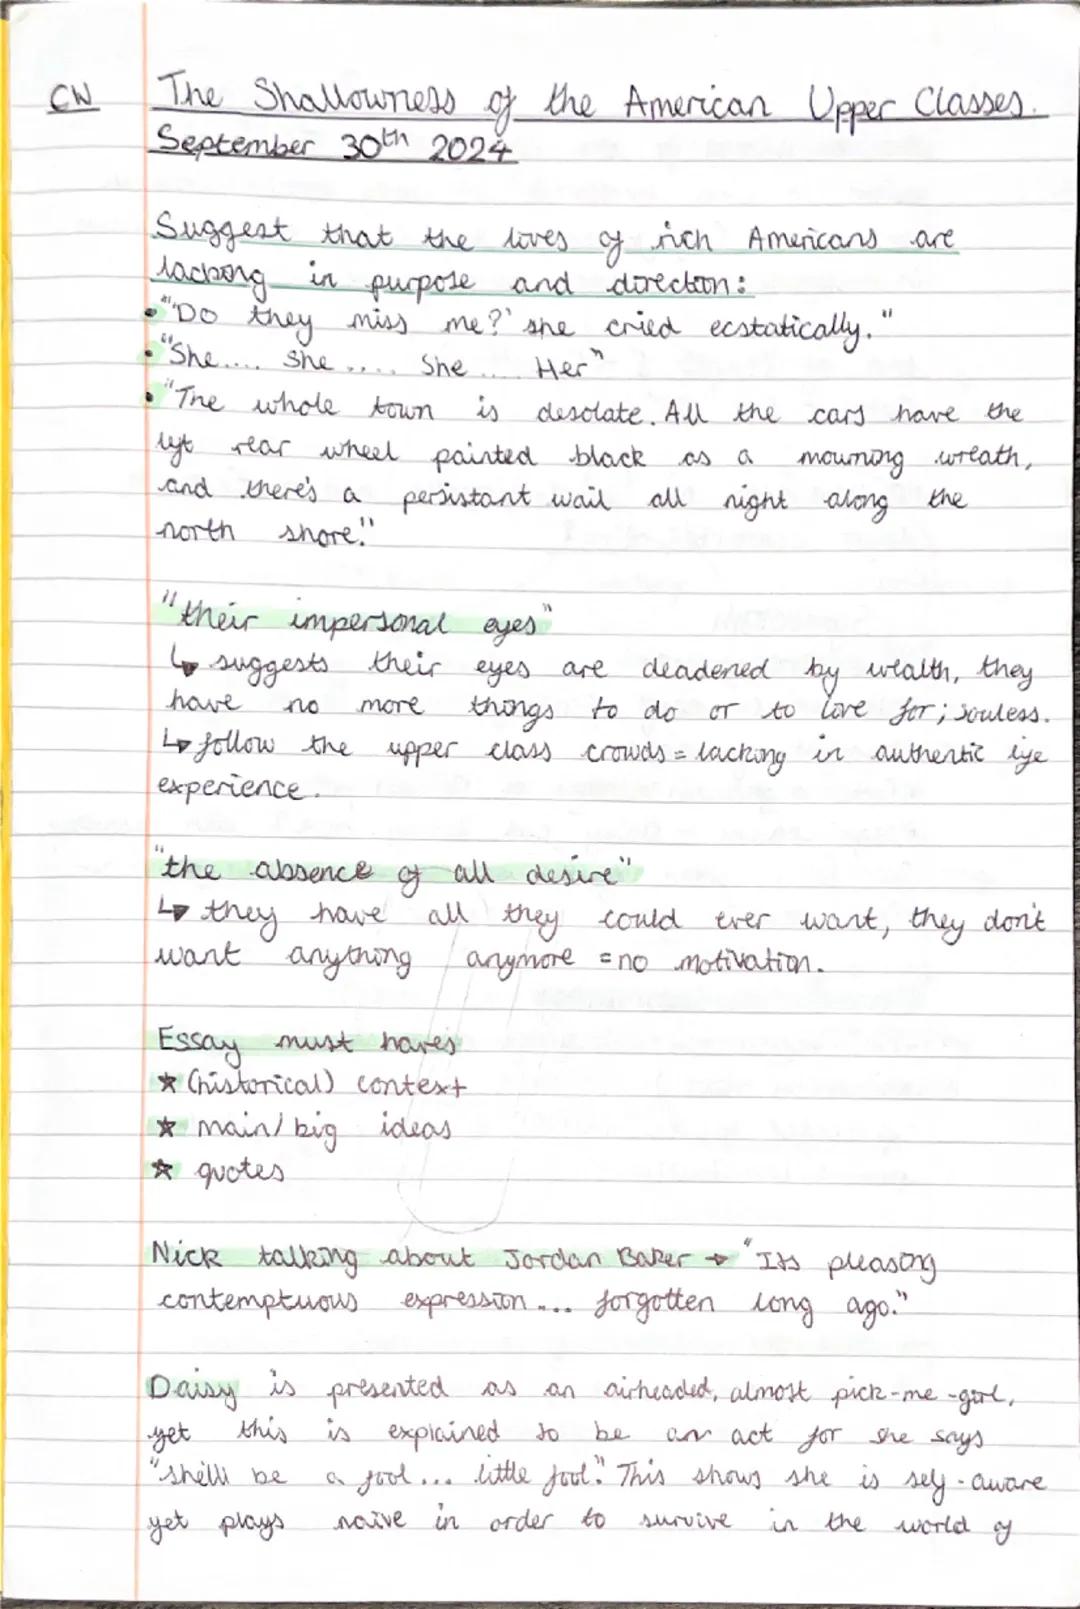 CW The Shallowness of the American Upper Classes.
September 30th 2024
Suggest that the lives of rich Americans are
lacking in purpose and direction:
• "'Do they miss me?' she cried ecstatically."
• "She.... she .... She .... Her"
• "The whole town is desolate. All the cars have the
left rear wheel painted black as a mourning wreath,
and there's a persistant wail all night along the
north shore."
"their impersonal eyes"
↳ suggests their eyes are deadened by wealth, they
have no more things to do or to live for; souless.
↳ follow the upper class crowds = lacking in authentic life
experience.
"the absence of all desire"
↳ they have all they could ever want, they don't
want anything anymore = no motivation.
Essay must haves
☆ (historical) context
☆ main/big ideas
☆ quotes
Nick talking about Jordan Baker → "Its pleasing
contemptuous expression ... forgotten long ago."
Daisy is presented as an airheaded, almost pick-me-girl,
yet this is explained to be an act for she says
"she'll be a fool... little fool." This shows she is self-aware
yet plays naive in order to survive in the world of